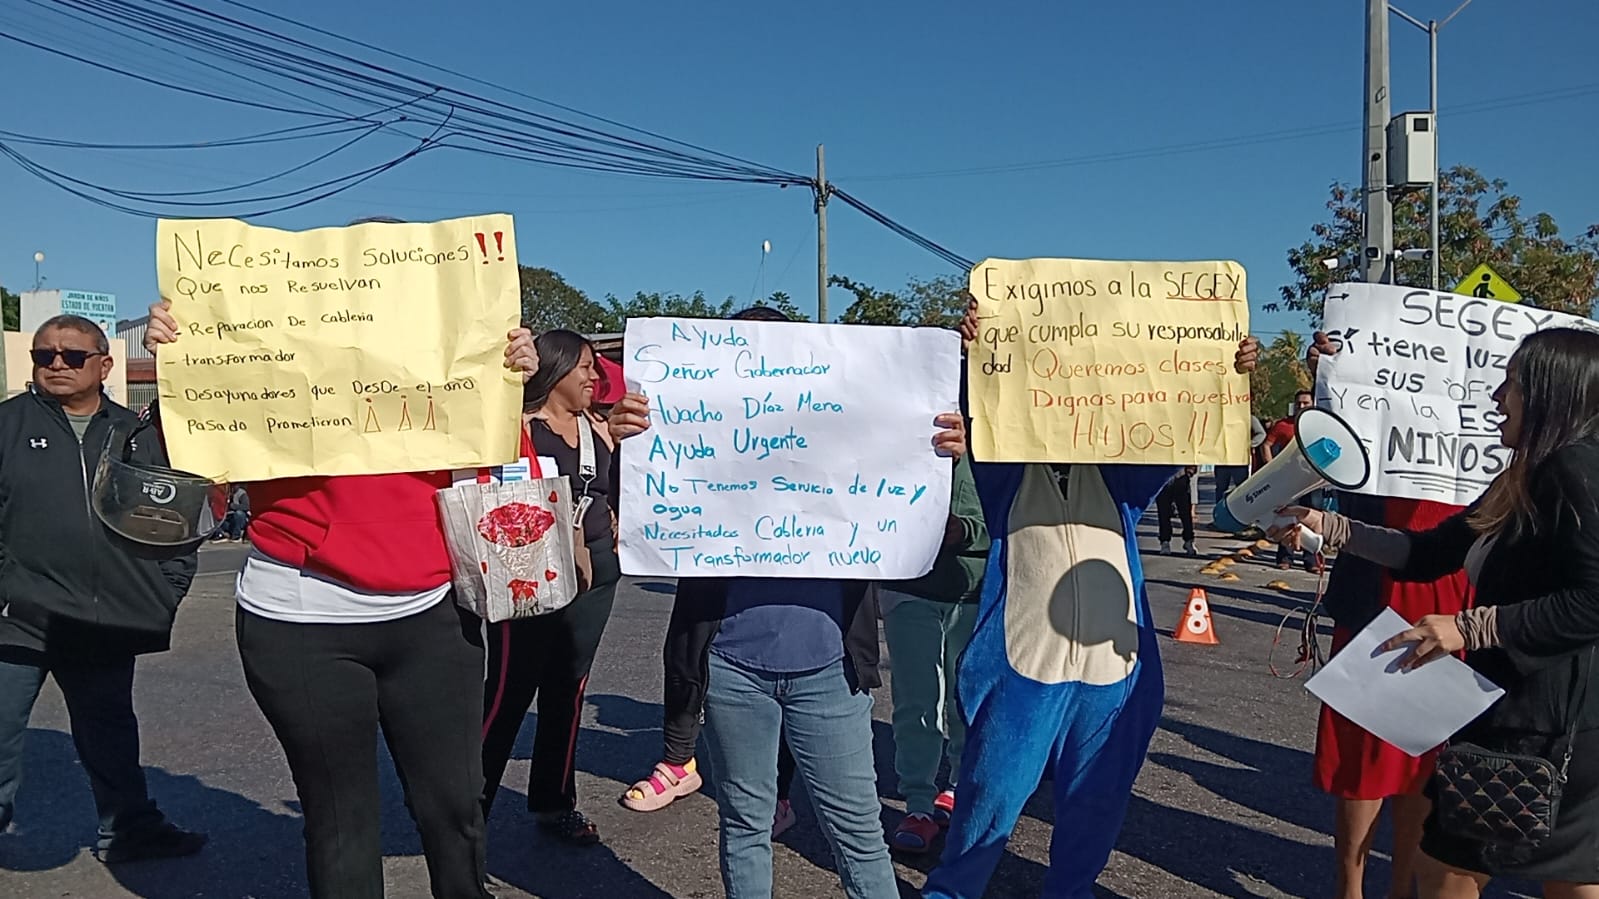 JARDIN DE NIÑOS
ESTADO DE YUCATAN
Necesitamos Soluciones !!
Que nos Resuelvan
Reparacion De Cableria
- transformador
- Desayunadores que DesDe el año
Pasado Prometieron ¡ ¡ ¡
Ayuda
Señor Gobernador
Huacho Díaz Mena
Ayuda Urgente
No Tenemos Servicio de luz y
agua
Necesitados Cableria y un
Transformador nuevo
Exigimos a la SEGEY
que cumpla su responsabili
dad Queremos clases
Dignas para nuestro
HIJOS !!
SEGEY
Sí tiene luz
sus "OF
-Y en la ES
NIÑOS
Steren
8